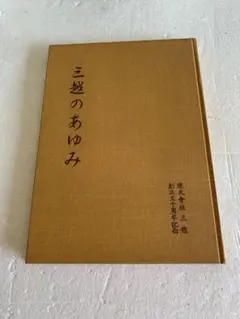 三越のあゆみ
株式會社三越
創立五十周年記念